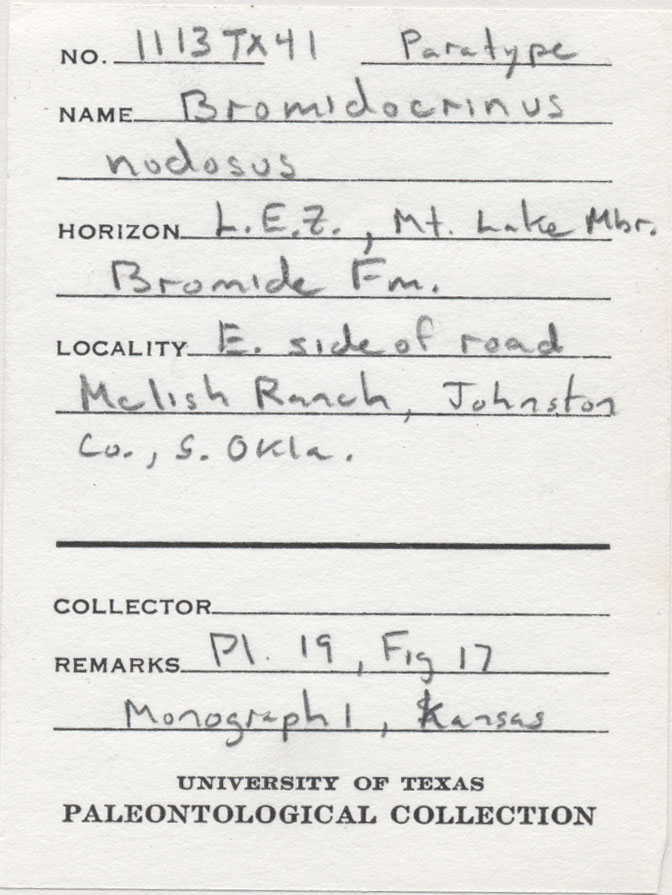 NO. 1113TX41 Paratype
NAME Bromidocrinus
nodosus
HORIZON L.E.Z., Mt. Lake Mbr.
Bromide Fm.
LOCALITY E. side of road
Mclish Ranch, Johnston
Co., S. Okla.
COLLECTOR
REMARKS Pl. 19, Fig 17
Monograph 1, Kansas
UNIVERSITY OF TEXAS
PALEONTOLOGICAL COLLECTION